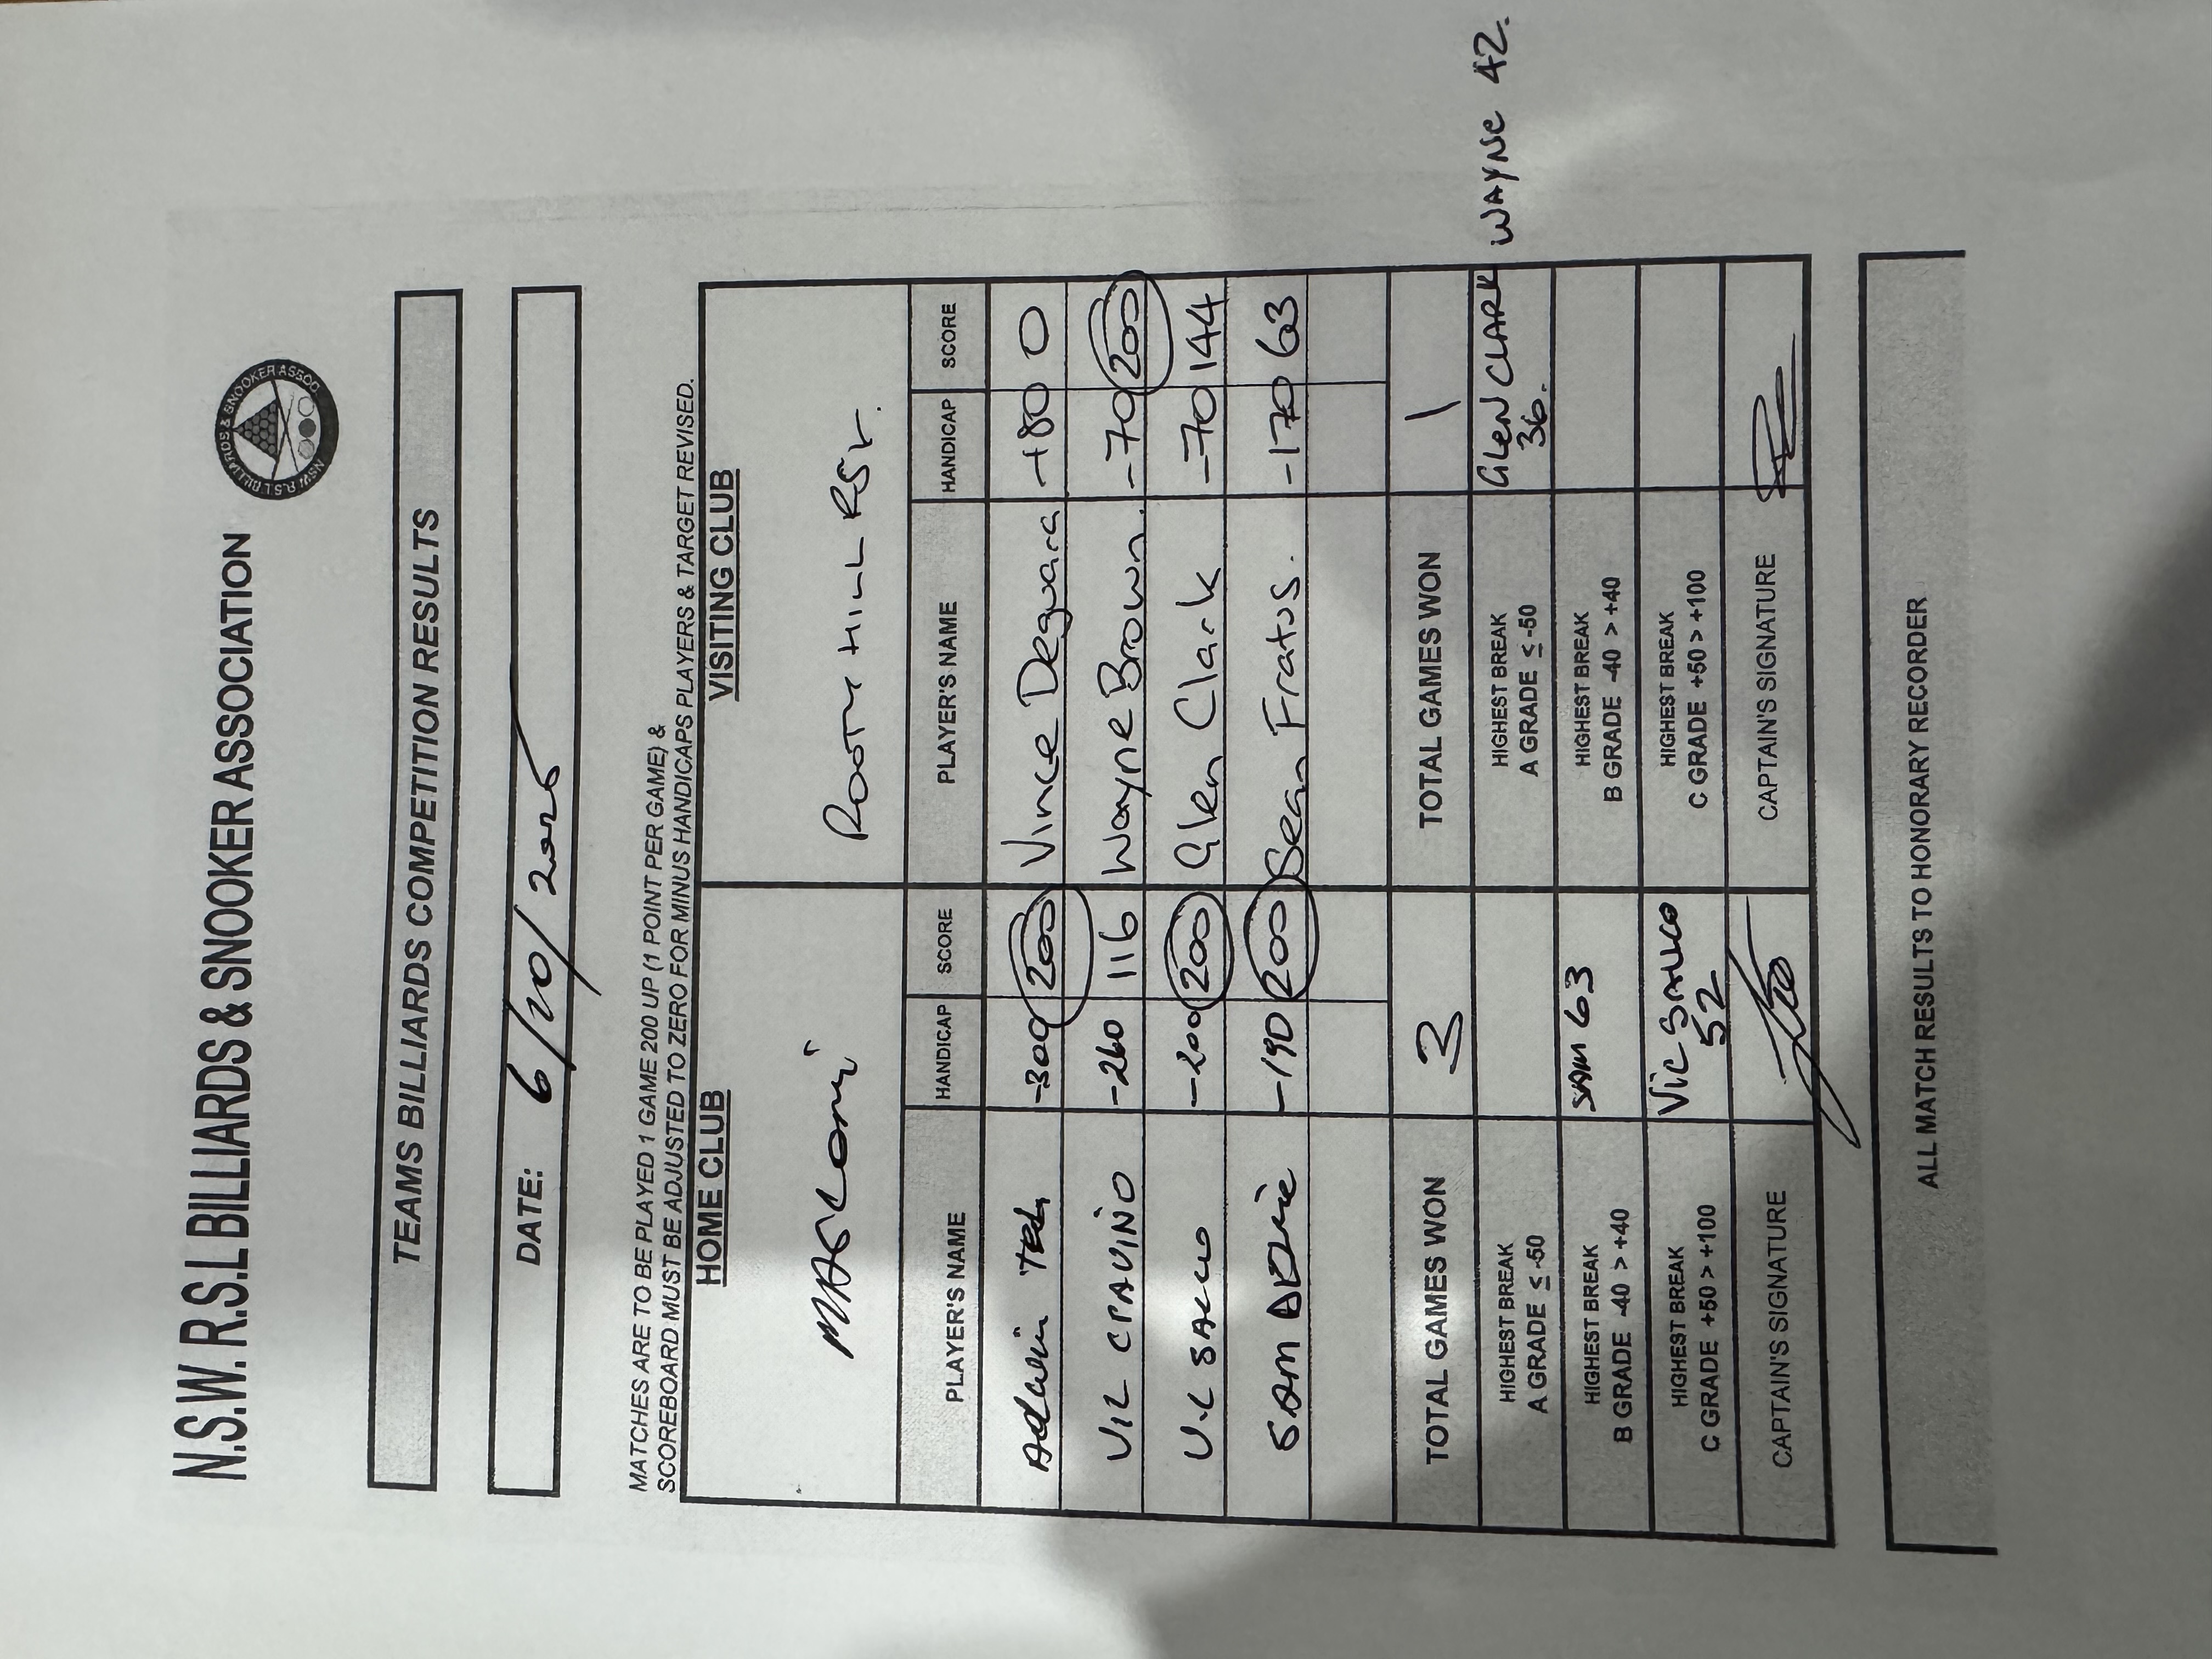 N.S.W. R.S.L BILLIARDS & SNOOKER ASSOCIATION
NSW R.S.L BILLIARDS & SNOOKER ASSOC
TEAMS BILLIARDS COMPETITION RESULTS
DATE: 6/10/2025
MATCHES ARE TO BE PLAYED 1 GAME 200 UP (1 POINT PER GAME) &
SCOREBOARD MUST BE ADJUSTED TO ZERO FOR MINUS HANDICAPS PLAYERS & TARGET REVISED.
HOME CLUB VISITING CLUB
ROOTY HILL RSL.
PLAYER'S NAME HANDICAP SCORE PLAYER'S NAME HANDICAP SCORE
-300 200 Vince Deguara +80 0
VIC CTAVINO -260 116 Wayne Brown -70 200
VIC SACCO -200 200 Glen Clark -70 144
SAM -190 200 Sean Fratus. -170 63
TOTAL GAMES WON 3 TOTAL GAMES WON 1
HIGHEST BREAK A GRADE ≤ -50 HIGHEST BREAK A GRADE ≤ -50 GLEN CLARK 36. WAYNE 42.
HIGHEST BREAK B GRADE -40 > +40 SAM 63 HIGHEST BREAK B GRADE -40 > +40
HIGHEST BREAK C GRADE +50 > +100 VIC SACCO 52 HIGHEST BREAK C GRADE +50 > +100
CAPTAIN'S SIGNATURE CAPTAIN'S SIGNATURE
ALL MATCH RESULTS TO HONORARY RECORDER